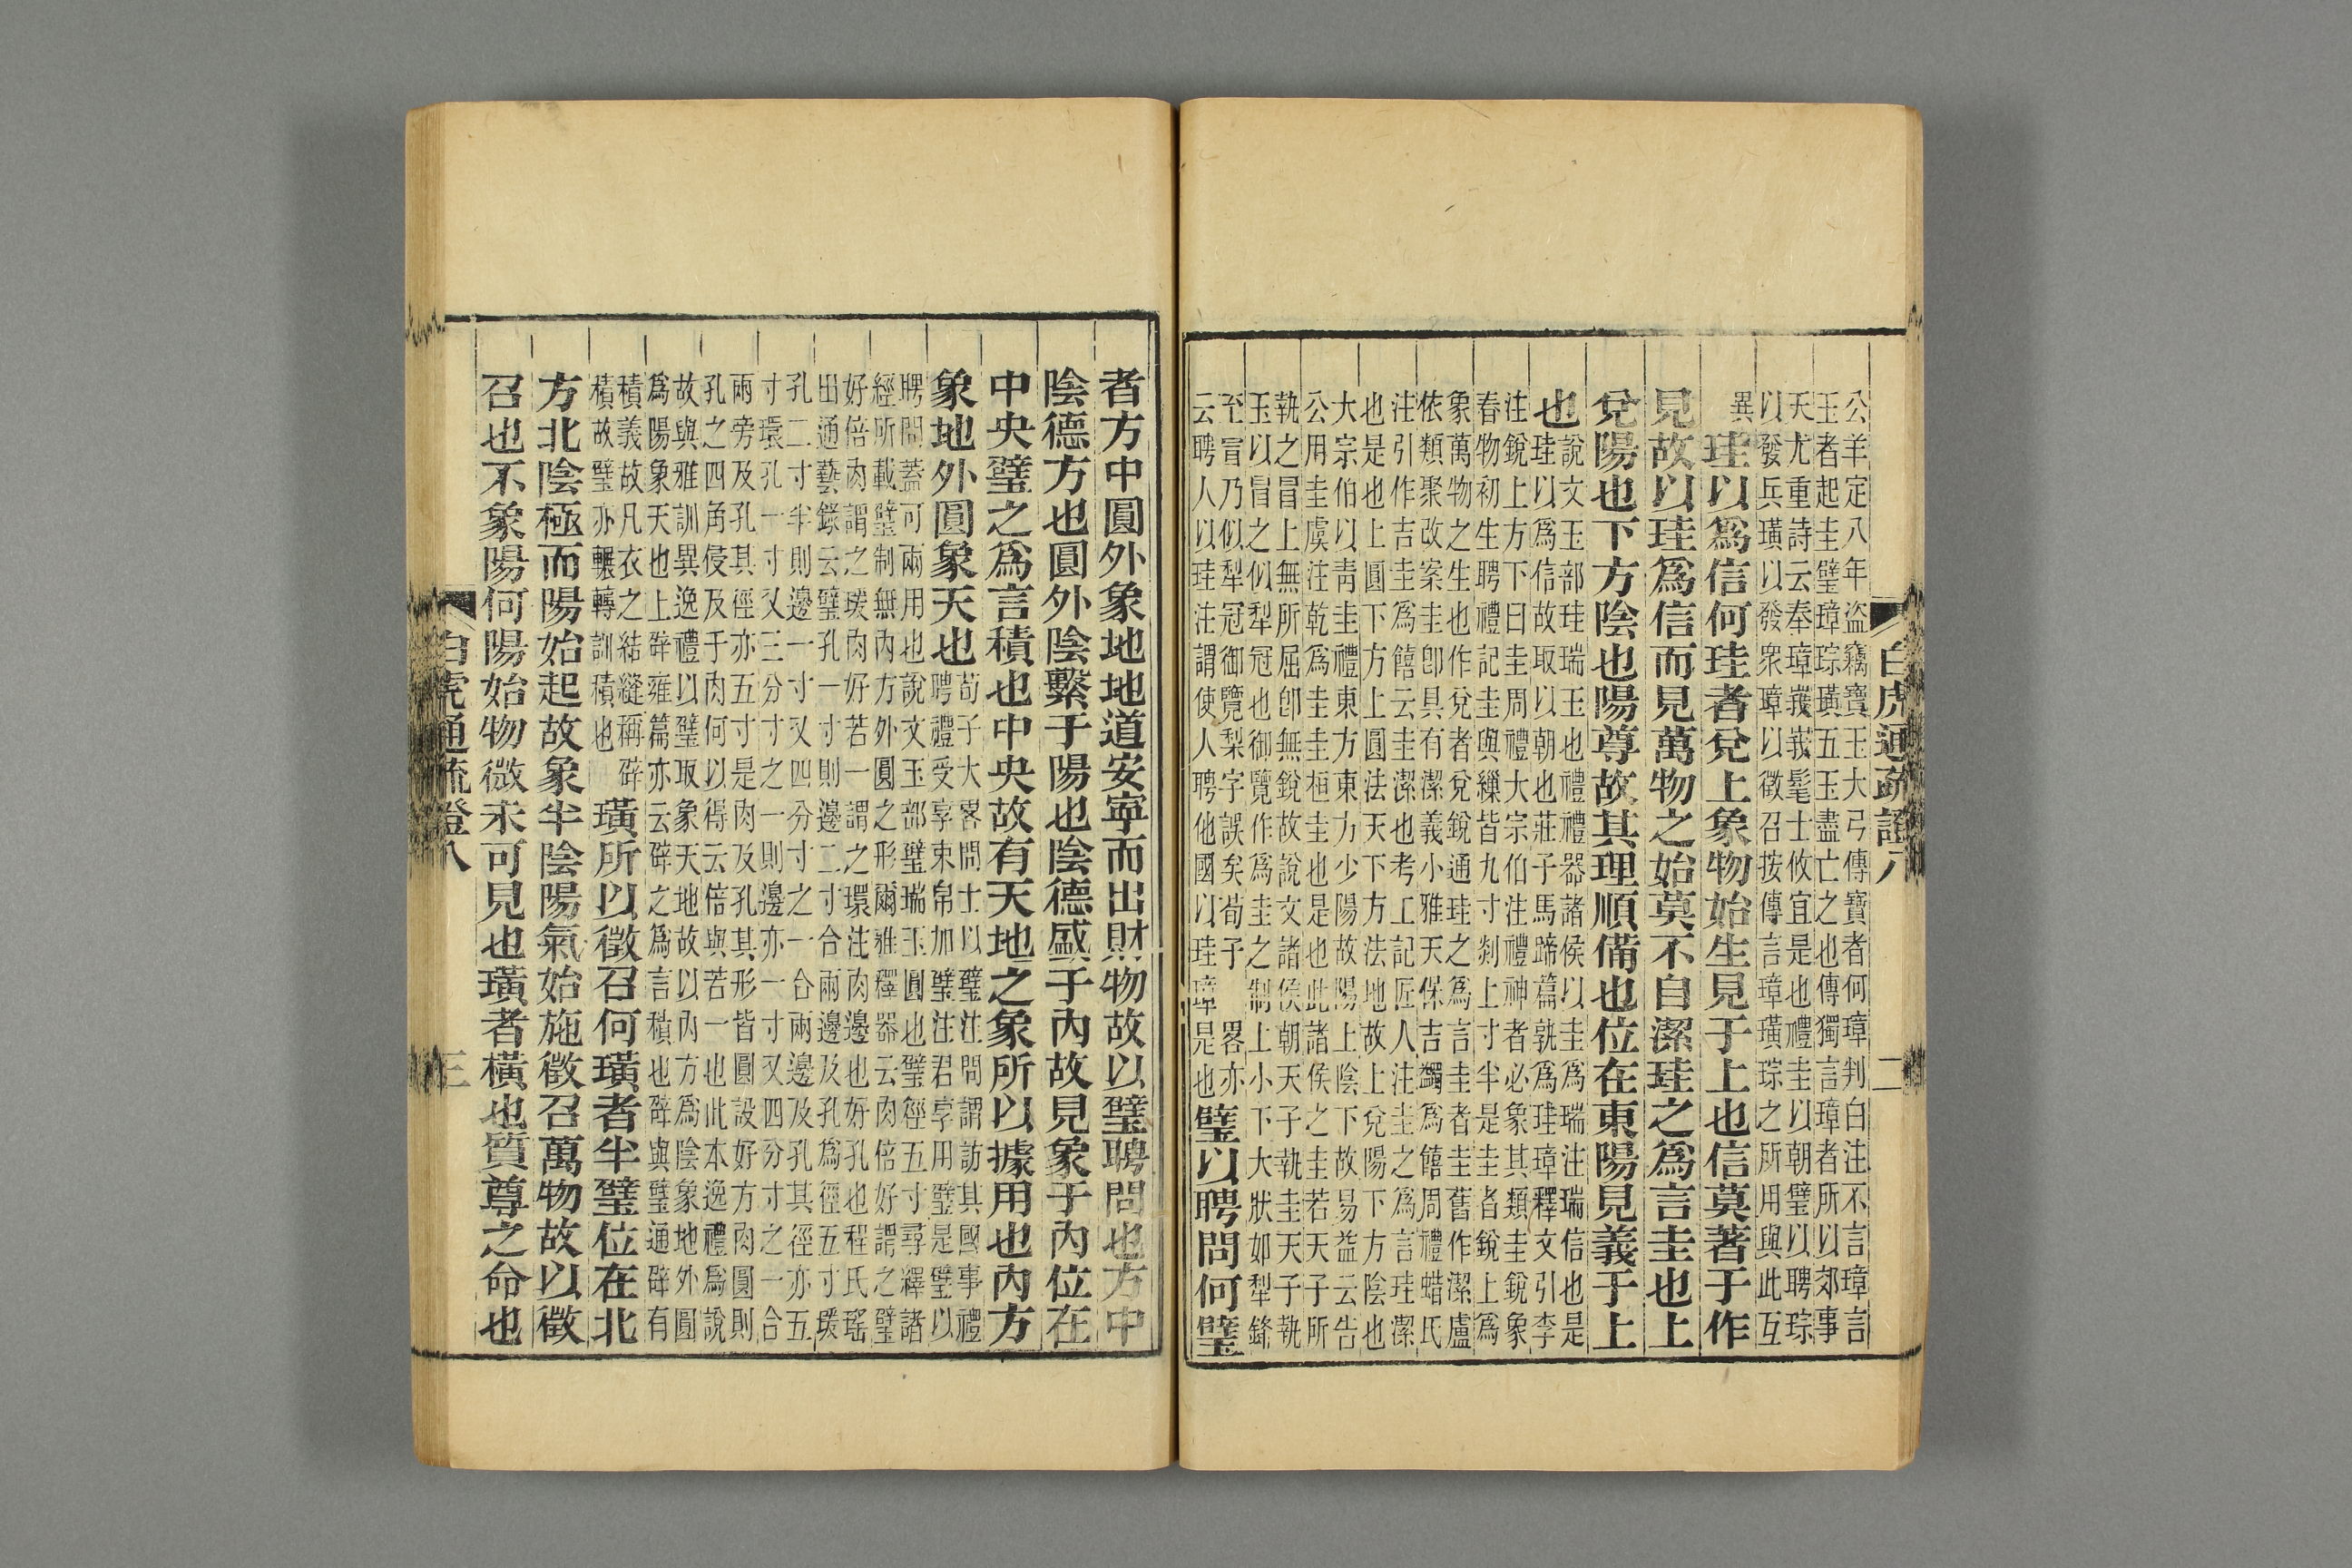 白虎通疏證八　二
公羊定八年盜竊寶玉大弓傳寶者何璋判白注不言璋言
玉者起圭璧璋琮璜五玉盡亡之也傳獨言璋者所以郊事
天尤重詩云奉璋峩峩髦士攸宜是也禮圭以朝璧以聘琮
以發兵璜以發眾璋以徵召按傳言璋璜琮之所用與此互
異
珪以爲信何珪者兌上象物始生見于上也信莫著于作
見故以珪爲信而見萬物之始莫不自潔珪之爲言圭也上
兌陽也下方陰也陽尊故其理順備也位在東陽見義于上
也
說文玉部珪瑞玉也禮禮器諸侯以圭爲瑞注瑞信也是
珪以爲信故取以朝也莊子馬蹄篇孰爲珪璋釋文引李
注銳上方下曰圭周禮大宗伯注禮神者必象其類圭銳象
春物初生聘禮記圭與繅皆九寸剡上寸半是圭者銳上爲
象萬物之生也作兌者兌銳通珪之爲言圭者圭舊作潔盧
依類聚改案圭卽具有潔義小雅天保吉蠲爲饎周禮蜡氏
注引作吉圭爲饎云圭潔也考工記匠人注圭之爲言珪潔
也是也上圓下方上圓法天下方法地故上兌陽下方陰也
大宗伯以靑圭禮東方東方少陽故陽上陰下故易益云告
公用圭虞注乾爲圭圭桓圭也是也此諸侯之圭若天子所
執之冒上無所屈卽無銳故說文諸侯朝天子執圭天子執
玉以冒之似犁冠也御覽作爲圭之制上小下大狀如犁鋒
至冒乃似犁冠御覽梨字誤矣荀子畧亦
云聘人以珪注謂使人聘他國以珪璋是也
璧以聘問何璧
者方中圓外象地地道安寧而出財物故以璧聘問也方中
陰德方也圓外陰繫于陽也陰德盛于內故見象于內位在
中央璧之爲言積也中央故有天地之象所以據用也內方
象地外圓象天也
荀子大畧問士以璧注問謂訪其國事禮
聘禮受享束帛加璧注君享用璧是璧以
聘問蓋可兩用也說文玉部璧瑞玉圓也璧徑五寸尋釋諸
經所載璧制無內方外圓之形爾雅釋器云肉倍好謂之璧
好倍肉謂之瑗肉好若一謂之環注肉邊也好孔也程氏瑤
出通藝錄云璧孔一寸則邊二寸合兩邊及孔爲徑五寸瑗
孔二寸半則邊一寸又四分寸之一合兩邊及孔其徑亦五
寸環孔一寸又三分寸之一則邊亦一寸又四分寸之一合
兩旁及孔其徑亦五寸是肉及孔其形皆圓設好方肉圓則
孔之四角侵及于肉何以得云倍與若一也此本逸禮爲說
故與雅訓異逸禮以璧取象天地故以內方爲陰象地外圓
爲陽象天也上辟雍篇亦云辟之爲言積也辟與璧通辟有
積義故凡衣之結縫稱辟
積故璧亦輾轉訓積也
璜所以徵召何璜者半璧位在北
方北陰極而陽始起故象半陰陽氣始施徵召萬物故以徵
召也不象陽何陽始物微未可見也璜者橫也質尊之命也
白虎通疏證八　三